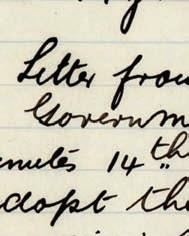 Letter from
Governm
inutes 14th
dopt the